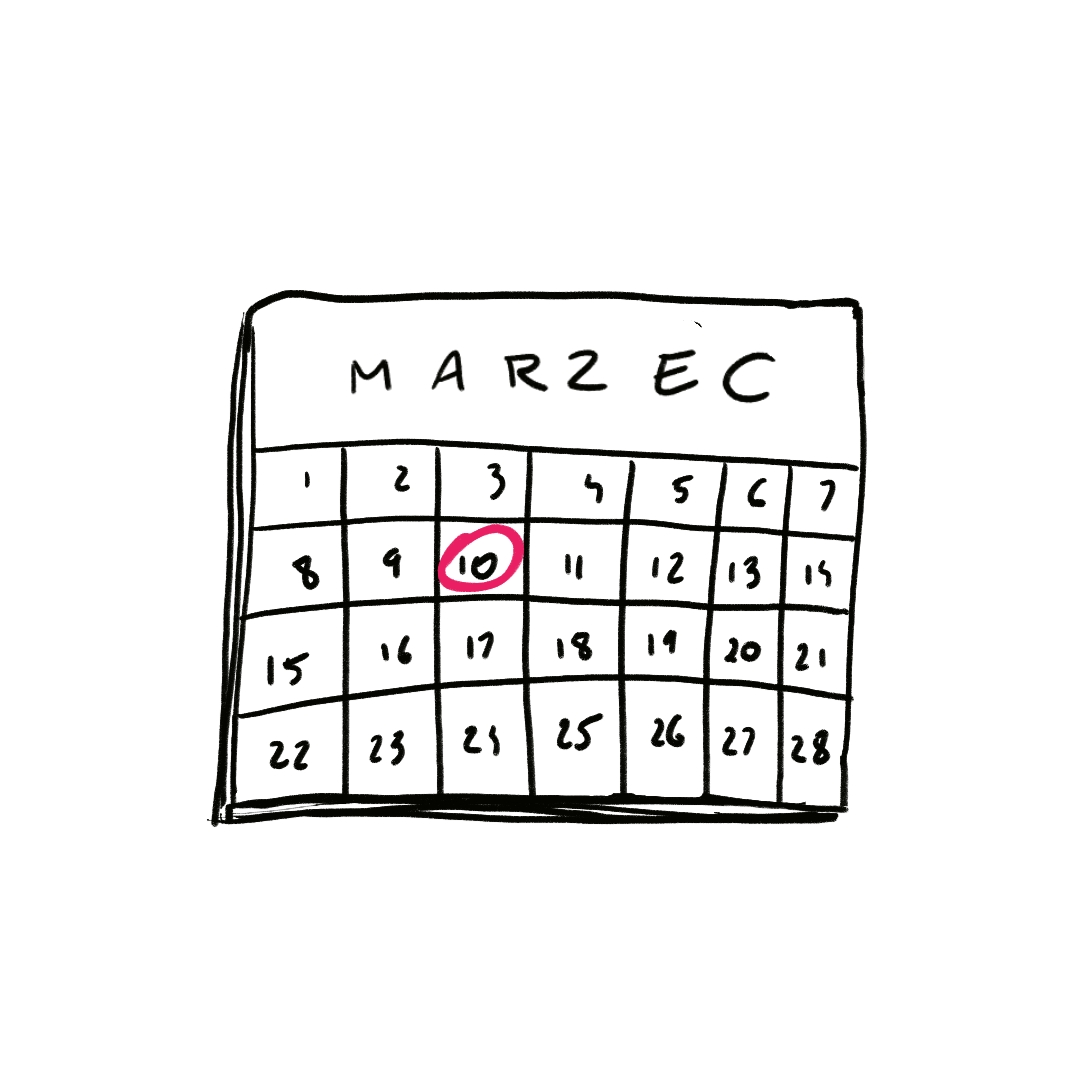 MARZEC
1 2 3 4 5 6 7
8 9 10 11 12 13 14
15 16 17 18 19 20 21
22 23 24 25 26 27 28